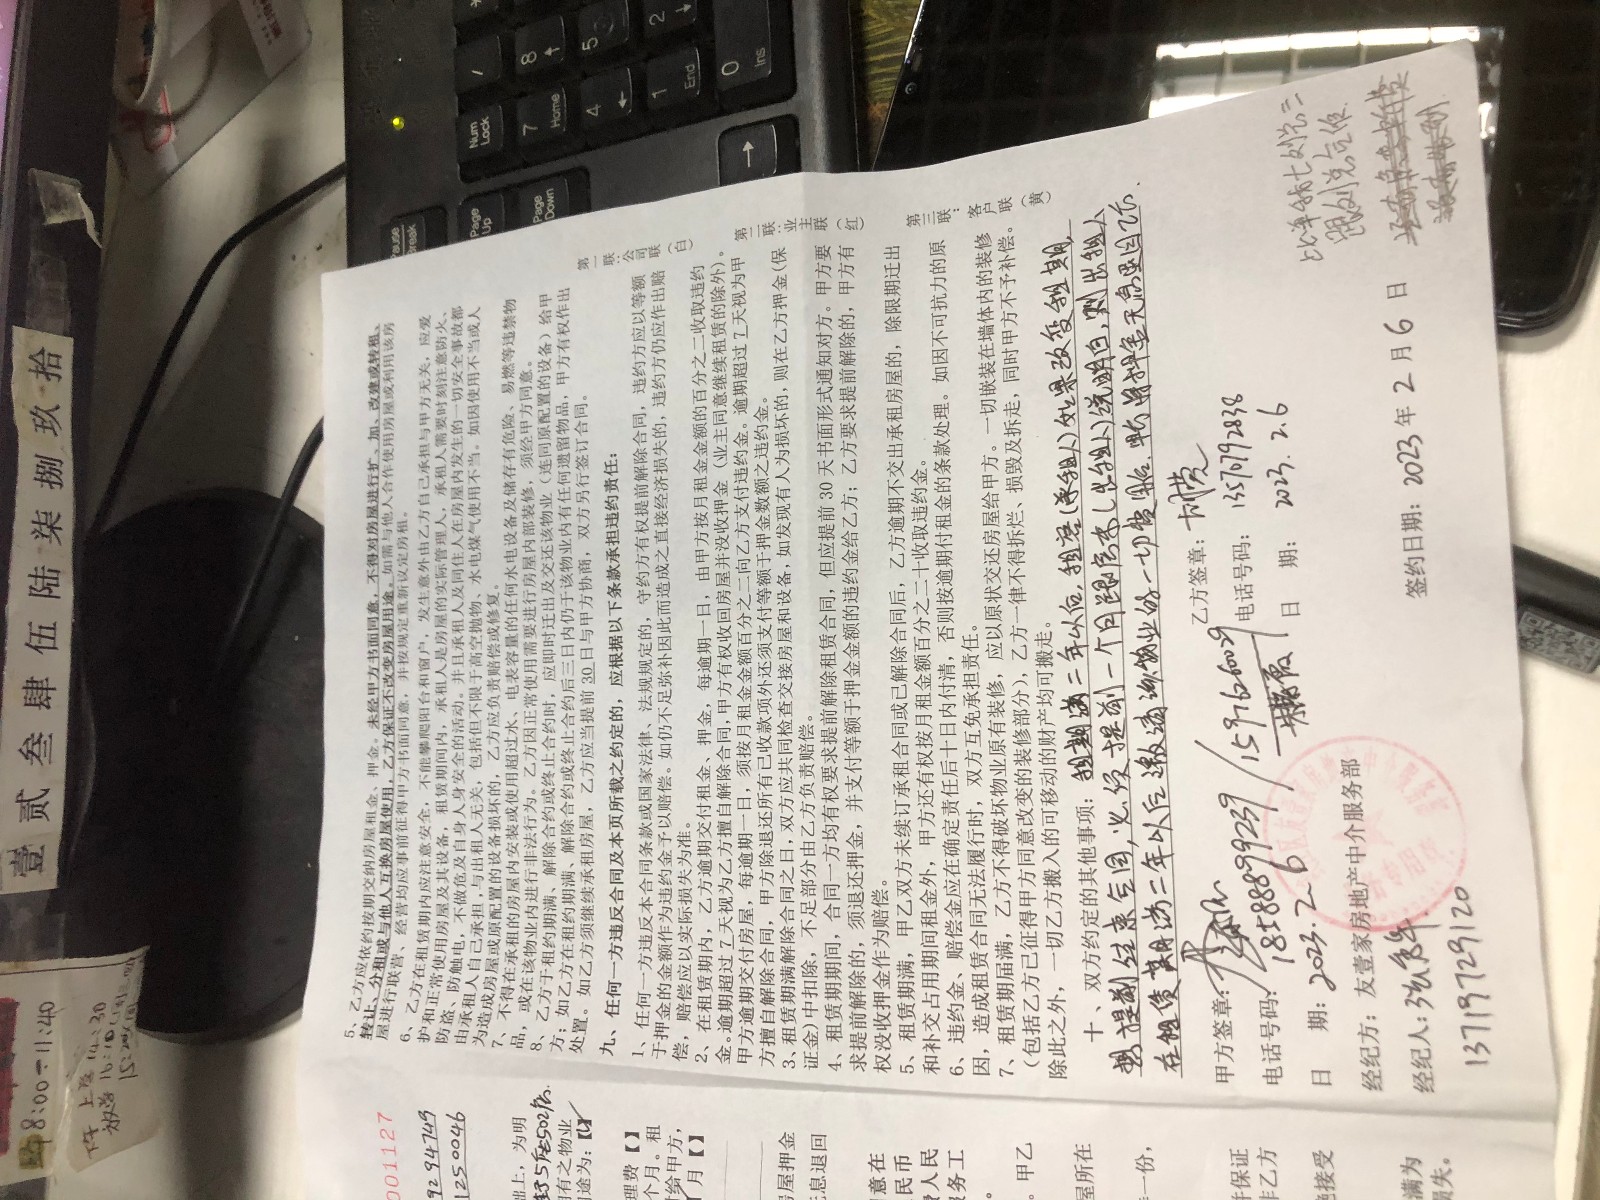 5、乙方应依约按期交纳房屋租金、押金。未经甲方书面同意，不得对房屋进行扩、加、改建或转租、
转让、分租或与他人互换房屋使用，乙方保证不改变房屋用途。如需与他人合作使用房屋或利用该房
屋进行联营、经营均应事前征得甲方书面同意，并按规定重新议定房租。
6、乙方在租赁期内应注意安全，不能攀爬阳台和窗户，发生意外由乙方自己承担与甲方无关，应爱
护和正常使用房屋及其设备，租赁期间内，承租人是房屋的实际管理人，承租人需要时刻注意防火、
防盗、防触电，不做危及自身人身安全的活动。并且承租人及同住人在房屋内发生的一切安全事故都
由承租人自己承担，与出租人无关，包括但不限于高空抛物、水电煤气使用不当。如因使用不当或人
为造成房屋或原配置的设备损坏的，乙方应负责赔偿或修复。
7、不得在承租的房屋内安装或使用超过水、电表容量的任何水电设备及储存有危险、易燃等违禁物
品，或在该物业内进行非法行为。乙方因正常使用需要进行房屋内部装修，须经甲方同意。
8、乙方于租约期满、解除合约或终止合约时，应即时迁出及交还该物业（连同原配置的设备）给甲
方；如乙方在租约期满、解除合约或终止合约后三日内仍于该物业内有任何遗留物品，甲方有权作出
处置。如乙方须继续承租房屋，乙方应当提前30日与甲方协商，双方另行签订合同。
九、任何一方违反合同及本页所载之约定的，应根据以下条款承担违约责任：
1、任何一方违反本合同条款或国家法律、法规规定的，守约方有权提前解除合同，违约方应以等额
于押金的金额作为违约金予以赔偿。如仍不足弥补因此而造成之直接经济损失的，违约方仍应作出赔
偿，赔偿应以实际损失为准。
2、在租赁期内，乙方逾期交付租金、押金，每逾期一日，由甲方按月租金金额的百分之二收取违约
金。逾期超过7天视为乙方擅自解除合同，甲方有权收回房屋并没收押金（业主同意继续租赁的除外）。
甲方逾期交付房屋，每逾期一日，须按月租金金额百分之二向乙方支付违约金。逾期超过7天视为甲
方擅自解除合同，甲方除退还所有已收款项外还须支付等额于押金数额之违约金。
3、租赁期满解除合同之日，双方应共同检查交接房屋和设备，如发现有人为损坏的，则在乙方押金(保
证金)中扣除，不足部分由乙方负责赔偿。
4、租赁期期间，合同一方均有权要求提前解除租赁合同，但应提前30天书面形式通知对方。甲方要
求提前解除的，须退还押金，并支付等额于押金金额的违约金给乙方；乙方要求提前解除的，甲方有
权没收押金作为赔偿。
5、租赁期满，甲乙双方未续订承租合同或已解除合同后，乙方逾期不交出承租房屋的，除限期迁出
和补交占用期间租金外，甲方还有权按月租金额百分之二十收取违约金。
6、违约金、赔偿金应在确定责任后十日内付清，否则按逾期付租金的条款处理。如因不可抗力的原
因，造成租赁合同无法履行时，双方互免承担责任。
7、租赁期届满，乙方不得破坏物业原有装修，应以原状交还房屋给甲方。一切嵌装在墙体内的装修
（包括乙方已征得甲方同意改变的装修部分），乙方一律不得拆烂、损毁及拆走，同时甲方不予补偿。
除此之外，一切乙方搬入的可移动的财产均可搬走。
十、双方约定的其他事项：租期满二年以后,租客(承租人)如果改变租期,
提前结束合同,必须提前一个月跟房东(出租人)说明白,则出租人
在租赁期满二年以后缴清该物业的一切费用
甲方签章：
乙方签章：
电话号码：18588899239/15976260029
电话号码：13570792838
日 期：2023.2.6
日 期：2023.2.6
经纪方：友壹家房地产中介服务部
经纪人：
13719729120
签约日期：2023年2月6日
第一联：公司联（白）
第二联：业主联（红）
第三联：客户联（黄）
Num
Lock
/
7
Home
8
4
5
1
End
2
0
Ins
Page
Up
Page
Down
壹 贰 叁 肆 伍 陆 柒 捌 玖 拾
8:00-11:40
001127
92 94749
1250046
础上，为明
有之物业
途为：【
理费【 】
个月。租
给甲方，
月【 】
房屋押金
息退回
意在
民币
人民
务工
甲乙
屋所在
一份，
保证
乙方
接受
满为
失。